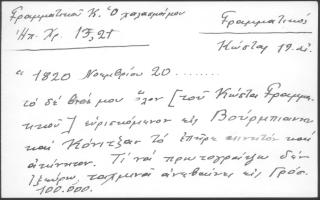 Γραμματικοῦ Κ. Ὁ χαλασμός μου
Ἠπ. Χρ. 15, 21
Γραμματικός
Κώστας 19. αἰ.
" 1820 Νοεμβρίου 20 ........
τὸ δὲ βιός μου ὅλον [τοῦ Κώστα Γραμμα-
τικοῦ] εὑρισκόμενον εἰς Βούρμπιανη
καὶ Κόνιτζαν τὸ ἐπῆρε κινητόν καὶ
ἀκίνητον. Τί νὰ πρωτογράψω δὲν
ἠξεύρω, ταχμινά ἀνεβαίνει εἰς Γρόσ.
100.000.